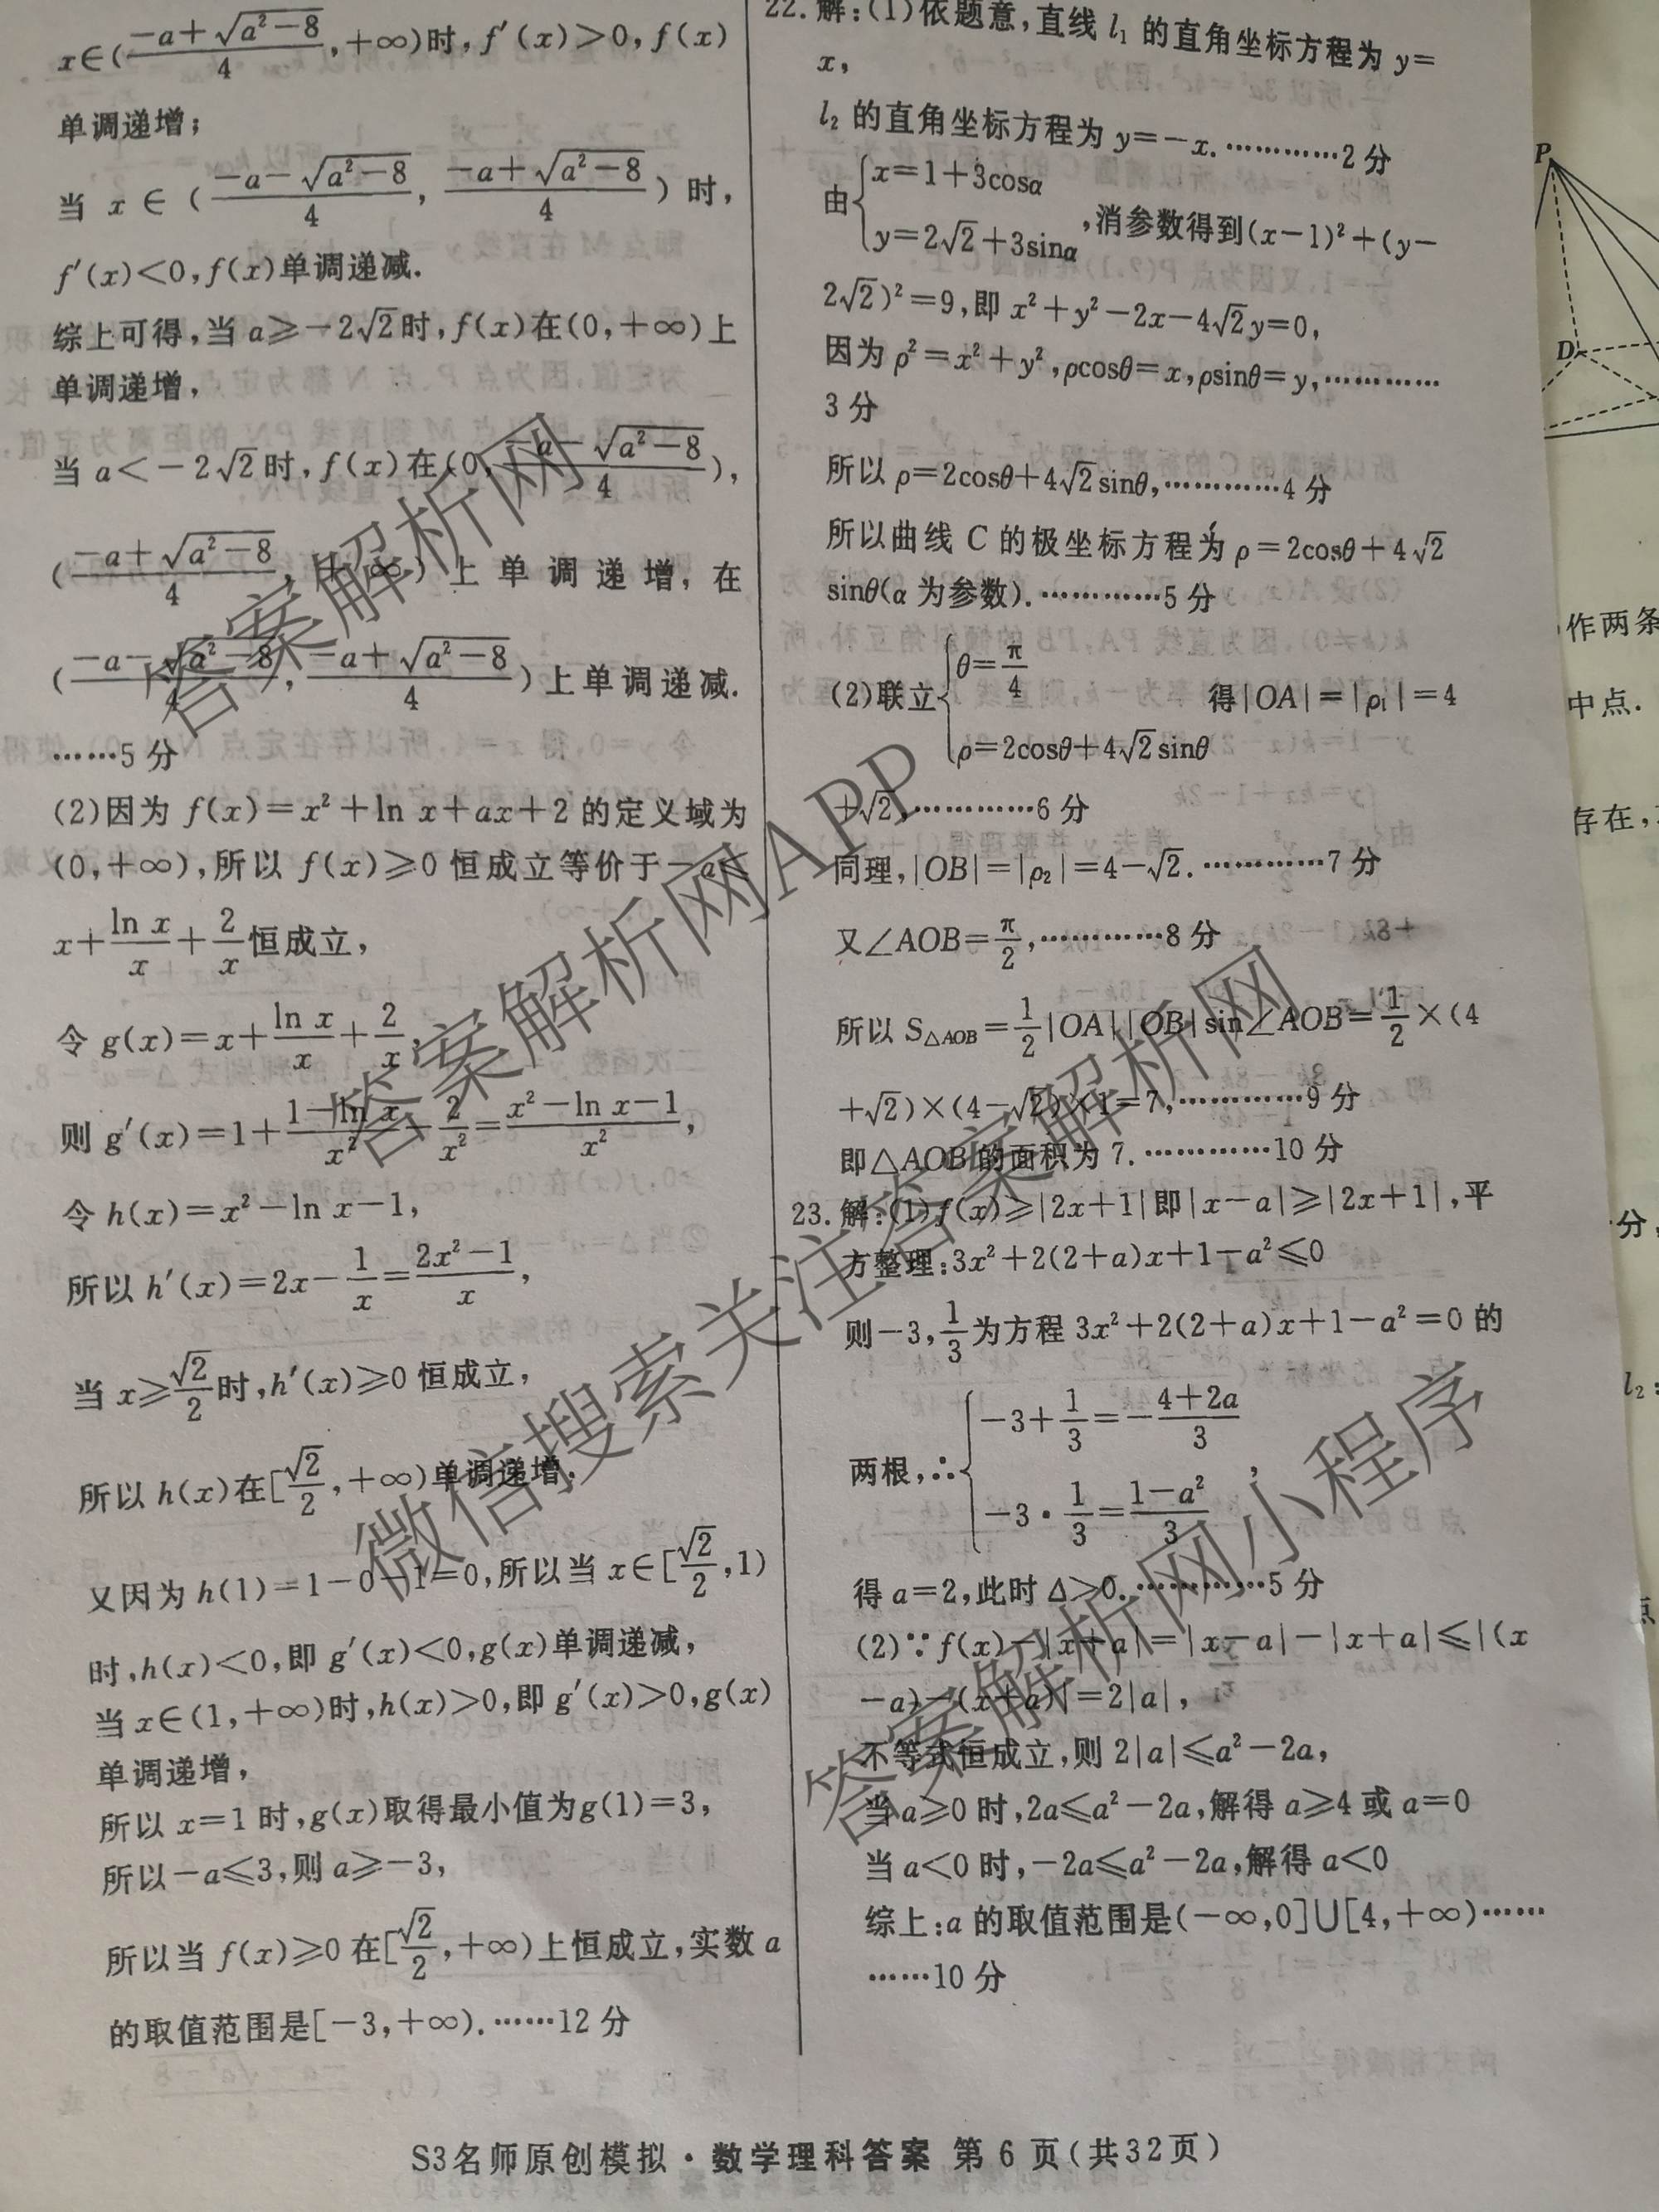 x∈(\frac{-a+\sqrt{a²-8}}{4},+∞)时,f′(x)>0,f(x)
单调递增;
当 x∈(\frac{-a-\sqrt{a²-8}}{4},\frac{-a+\sqrt{a²-8}}{4})时,
f′(x)<0,f(x)单调递减.
综上可得,当 a≥-2√2时,f(x)在(0,+∞)上
单调递增,
当 a<-2√2时,f(x)在(0,\frac{-a-\sqrt{a²-8}}{4}),
(\frac{-a+\sqrt{a²-8}}{4},+∞)上单调递增,在
(\frac{-a-\sqrt{a²-8}}{4},\frac{-a+\sqrt{a²-8}}{4})上单调递减.
……5 分
(2)因为 f(x)=x²+ln x+ax+2 的定义域为
(0,+∞),所以 f(x)≥0 恒成立等价于-a≤
x+\frac{ln x}{x}+\frac{2}{x}恒成立,
令 g(x)=x+\frac{ln x}{x}+\frac{2}{x},
则 g′(x)=1+\frac{1-ln x}{x²}-\frac{2}{x²}=\frac{x²-ln x-1}{x²},
令 h(x)=x²-ln x-1,
所以 h′(x)=2x-\frac{1}{x}=\frac{2x²-1}{x},
当 x≥\frac{√2}{2}时,h′(x)≥0 恒成立,
所以 h(x)在[\frac{√2}{2},+∞)单调递增,
又因为 h(1)=1-0-1=0,所以当 x∈[\frac{√2}{2},1)
时,h(x)<0,即 g′(x)<0,g(x)单调递减,
当 x∈(1,+∞)时,h(x)>0,即 g′(x)>0,g(x)
单调递增,
所以 x=1 时,g(x)取得最小值为g(1)=3,
所以-a≤3,则 a≥-3,
所以当 f(x)≥0 在[\frac{√2}{2},+∞)上恒成立,实数 a
的取值范围是[-3,+∞).……12 分
22.解:(1)依题意,直线 l₁ 的直角坐标方程为 y=
x,
l₂ 的直角坐标方程为 y=-x.…………2 分
由{x=1+3cosα
y=2√2+3sinα,消参数得到(x-1)²+(y-
2√2)²=9,即 x²+y²-2x-4√2y=0,
因为 ρ²=x²+y²,ρcosθ=x,ρsinθ=y,…………
3 分
所以 ρ=2cosθ+4√2sinθ,…………4 分
所以曲线 C 的极坐标方程为 ρ=2cosθ+4√2
sinθ(α 为参数).…………5 分
(2)联立{θ=\frac{π}{4}
ρ=2cosθ+4√2sinθ 得|OA|=|ρ₁|=4
+√2,…………6 分
同理,|OB|=|ρ₂|=4-√2.…………7 分
又∠AOB=\frac{π}{2},…………8 分
所以 S△AOB=\frac{1}{2}|OA||OB|sin∠AOB=\frac{1}{2}×(4
+√2)×(4-√2)×1=7,…………9 分
即△AOB 的面积为 7.…………10 分
23.解:(1)f(x)≥|2x+1|即|x-a|≥|2x+1|,平
方整理:3x²+2(2+a)x+1-a²≤0
则-3,\frac{1}{3}为方程 3x²+2(2+a)x+1-a²=0 的
两根,∴{-3+\frac{1}{3}=-\frac{4+2a}{3}
-3·\frac{1}{3}=\frac{1-a²}{3},
得 a=2,此时 Δ>0.…………5 分
(2)∵f(x)-|x+a|=|x-a|-|x+a|≤|(x
-a)-(x+a)|=2|a|,
不等式恒成立,则 2|a|≤a²-2a,
当 a≥0 时,2a≤a²-2a,解得 a≥4 或 a=0
当 a<0 时,-2a≤a²-2a,解得 a<0
综上:a 的取值范围是(-∞,0]∪[4,+∞)……
……10 分
S3名师原创模拟·数学理科答案 第 6 页(共32页)
答案解析网
答案解析网APP
微信搜索关注答案解析网
答案解析网小程序
P
D
作两条
中点.
存在,
分,
l₂: